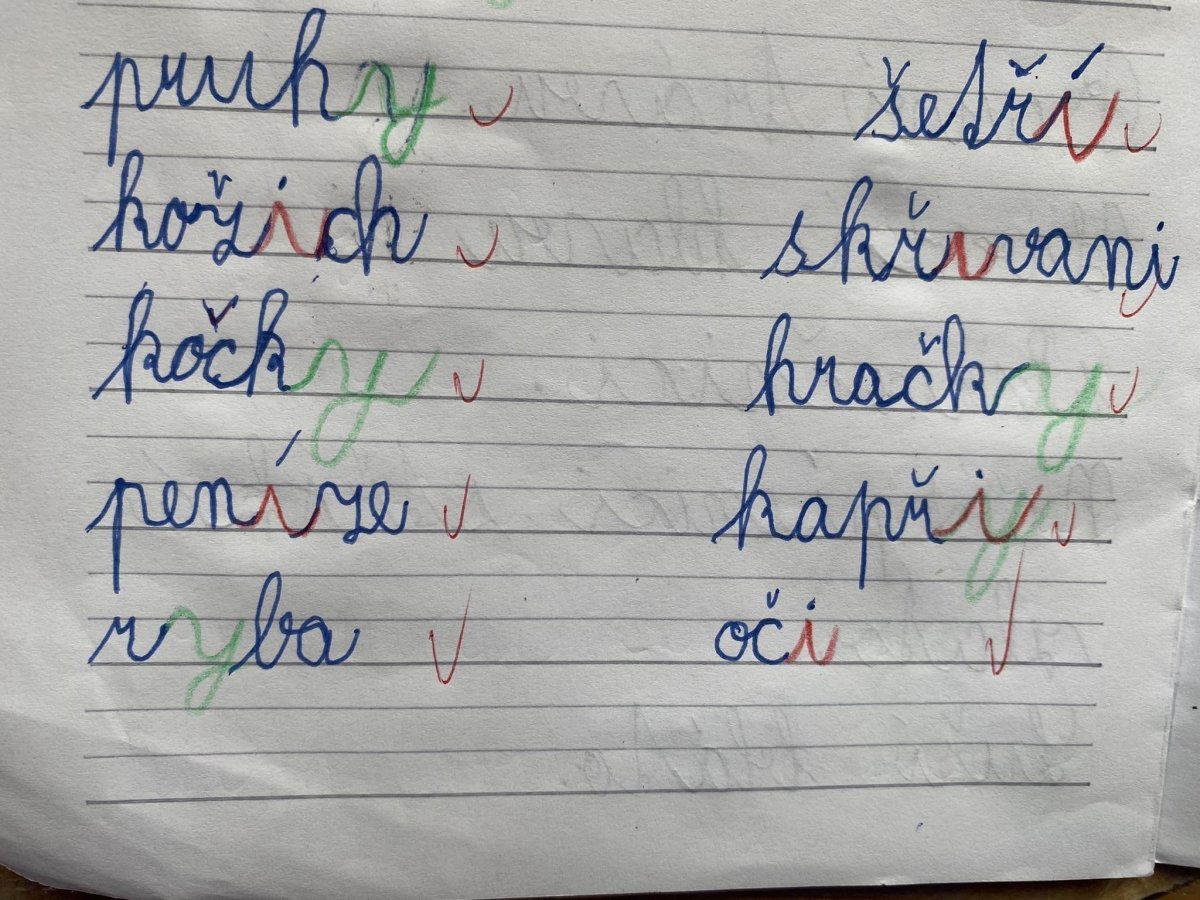 pruhy šetří
kožich skřivani
kočky hračky
peníze kapři
ryba oči